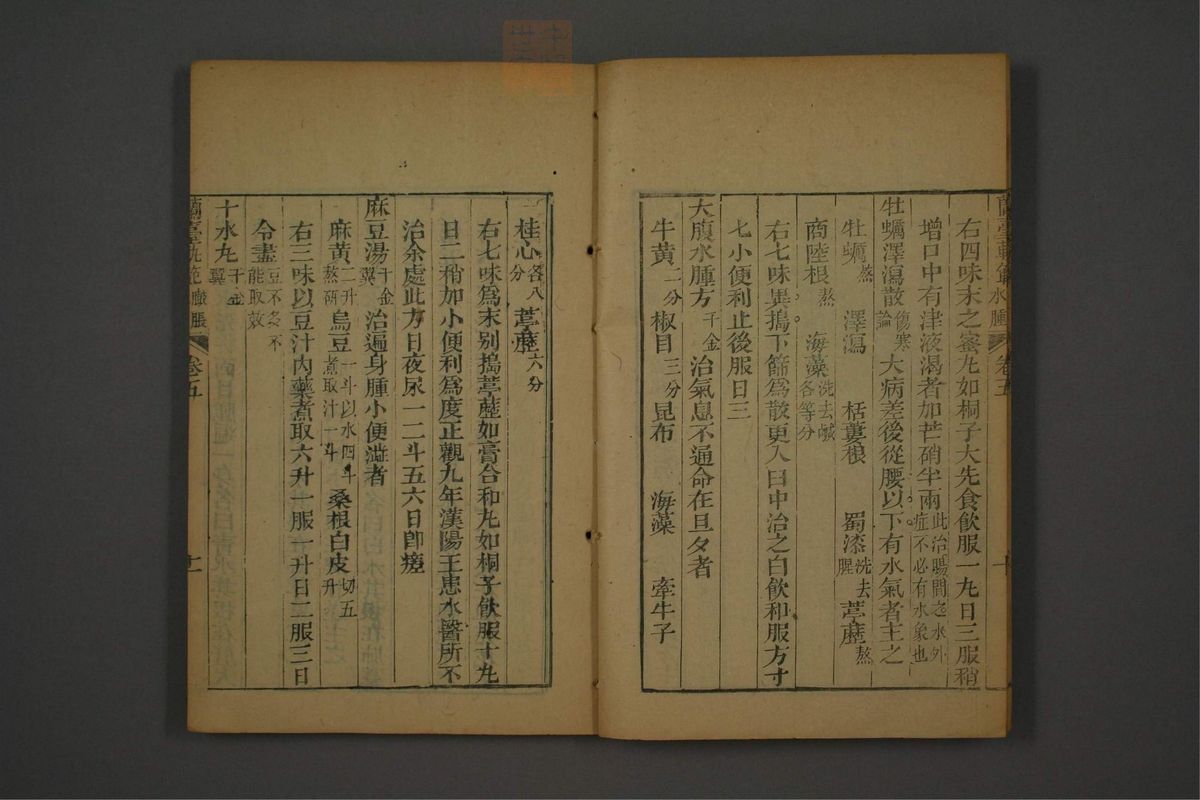 右四味末之蜜丸如桐子大先食飲服一丸日三服稍
增口中有津液渴者加芒硝半兩此治腸間之水外症不必有水象也
牡蠣澤瀉散傷寒論 大病差後從腰以下有水氣者主之
牡蠣熬 澤瀉 栝蔞根 蜀漆洗去腥 葶藶熬
商陸根熬 海藻洗去鹹各等分
右七味異搗下篩為散更入臼中治之白飲和服方寸
七小便利止後服日三
大腹水腫方千金 治氣息不通命在旦夕者
牛黃二分 椒目三分 昆布 海藻 牽牛子
桂心各八分 葶藶六分
右七味為末別搗葶藶如膏合和丸如桐子飲服十丸
日二稍加小便利為度正觀九年漢陽王患水醫所不
治余處此方日夜尿一二斗五六日卽瘥
麻豆湯千金翼 治遍身腫小便澁者
麻黃二升熬研 烏豆一斗以水四斗煮取汁一斗 桑根白皮切五升
右三味以豆汁內藥煮取六升一服一升日二服三日
令盡豆不多不能取效
十水丸千金翼